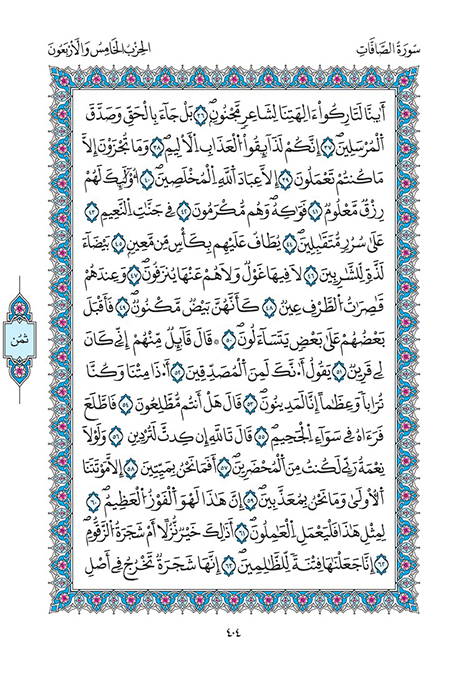 سُورَةُ الصَّافَّاتِ
الحِزْبُ الخَامِسُ وَالأَرْبَعُونَ
أَيِنَّا لَتَارِكُواْ ءَالِهَتِنَا لِشَاعِرٍ مَّجْنُونٍ ٣٦ بَلْ جَآءَ بِالْحَقِّ وَصَدَّقَ
اَلْمُرْسَلِينَ ٣٧ إِنَّكُمْ لَذَآئِقُواْ الْعَذَابِ الْأَلِيمِ ٣٨ وَمَا تُجْزَوْنَ إِلَّا
مَا كُنتُمْ تَعْمَلُونَ ٣٩ إِلَّا عِبَادَ اللَّهِ الْمُخْلَصِينَ ٤٠ أُوْلَٰٓئِكَ لَهُمْ
رِزْقٌ مَّعْلُومٌ ٤١ فَوَٰكِهُ وَهُم مُّكْرَمُونَ ٤٢ فِي جَنَّٰتِ النَّعِيمِ ٤٣
عَلَىٰ سُرُرٍ مُّتَقَٰبِلِينَ ٤٤ يُطَافُ عَلَيْهِم بِكَأْسٍ مِّن مَّعِينٍ ٤٥ بَيْضَآءَ
لَذَّةٍ لِّلشَّٰرِبِينَ ٤٦ لَا فِيهَا غَوْلٌ وَلَا هُمْ عَنْهَا يُنزَفُونَ ٤٧ وَعِندَهُمْ
قَٰصِرَٰتُ الطَّرْفِ عِينٌ ٤٨ كَأَنَّهُنَّ بَيْضٌ مَّكْنُونٌ ٤٩ فَأَقْبَلَ
بَعْضُهُمْ عَلَىٰ بَعْضٍ يَتَسَآءَلُونَ ٥٠ قَالَ قَآئِلٌ مِّنْهُمْ إِنِّي كَانَ
لِي قَرِينٌ ٥١ يَقُولُ أَٰنَّكَ لَمِنَ الْمُصَدِّقِينَ ٥٢ أَٰذَا مِتْنَا وَكُنَّا
تُرَابًا وَعِظَٰمًا إِنَّا لَمَدِينُونَ ٥٣ قَالَ هَلْ أَنتُم مُّطَّلِعُونَ ٥٤ فَاطَّلَعَ
فَرَءَاهُ فِي سَوَآءِ الْجَحِيمِ ٥٥ قَالَ تَاللَّهِ إِن كِدتَّ لَتُرْدِينِ ٥٦ وَلَوْلَا
نِعْمَةُ رَبِّي لَكُنتُ مِنَ الْمُحْضَرِينَ ٥٧ أَفَمَا نَحْنُ بِمَيِّتِينَ ٥٨ إِلَّا مَوْتَتَنَا
اَلْأُولَىٰ وَمَا نَحْنُ بِمُعَذَّبِينَ ٥٩ إِنَّ هَٰذَا لَهُوَ الْفَوْزُ الْعَظِيمُ ٦٠
لِمِثْلِ هَٰذَا فَلْيَعْمَلِ الْعَٰمِلُونَ ٦١ أَذَٰلِكَ خَيْرٌ نُّزُلًا أَمْ شَجَرَةُ الزَّقُّومِ
٦٢ إِنَّا جَعَلْنَٰهَا فِتْنَةً لِّلظَّٰلِمِينَ ٦٣ إِنَّهَا شَجَرَةٌ تَخْرُجُ فِي أَصْلِ
ثُمُن
٤٠٤